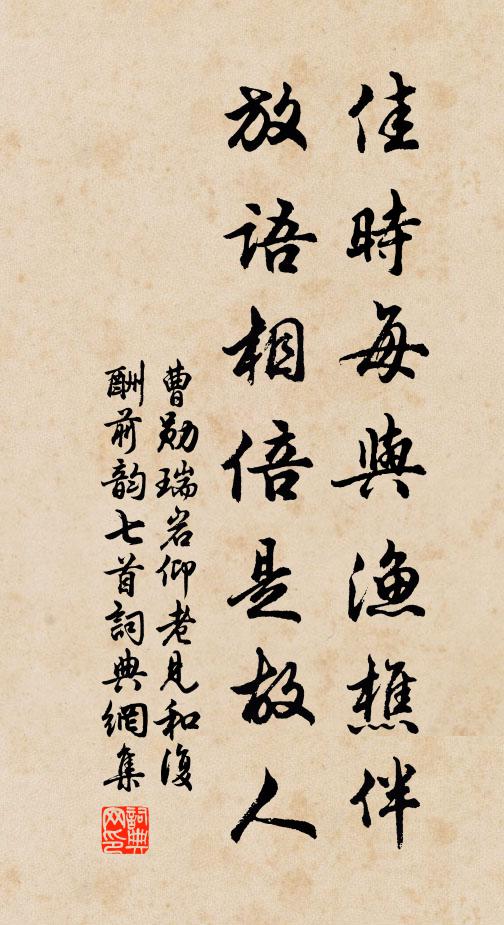 佳時每與漁樵伴
放語相倍是故人
曹勛瑞岩仰老見和復
酬前韵七首詞典網集
詞典网印